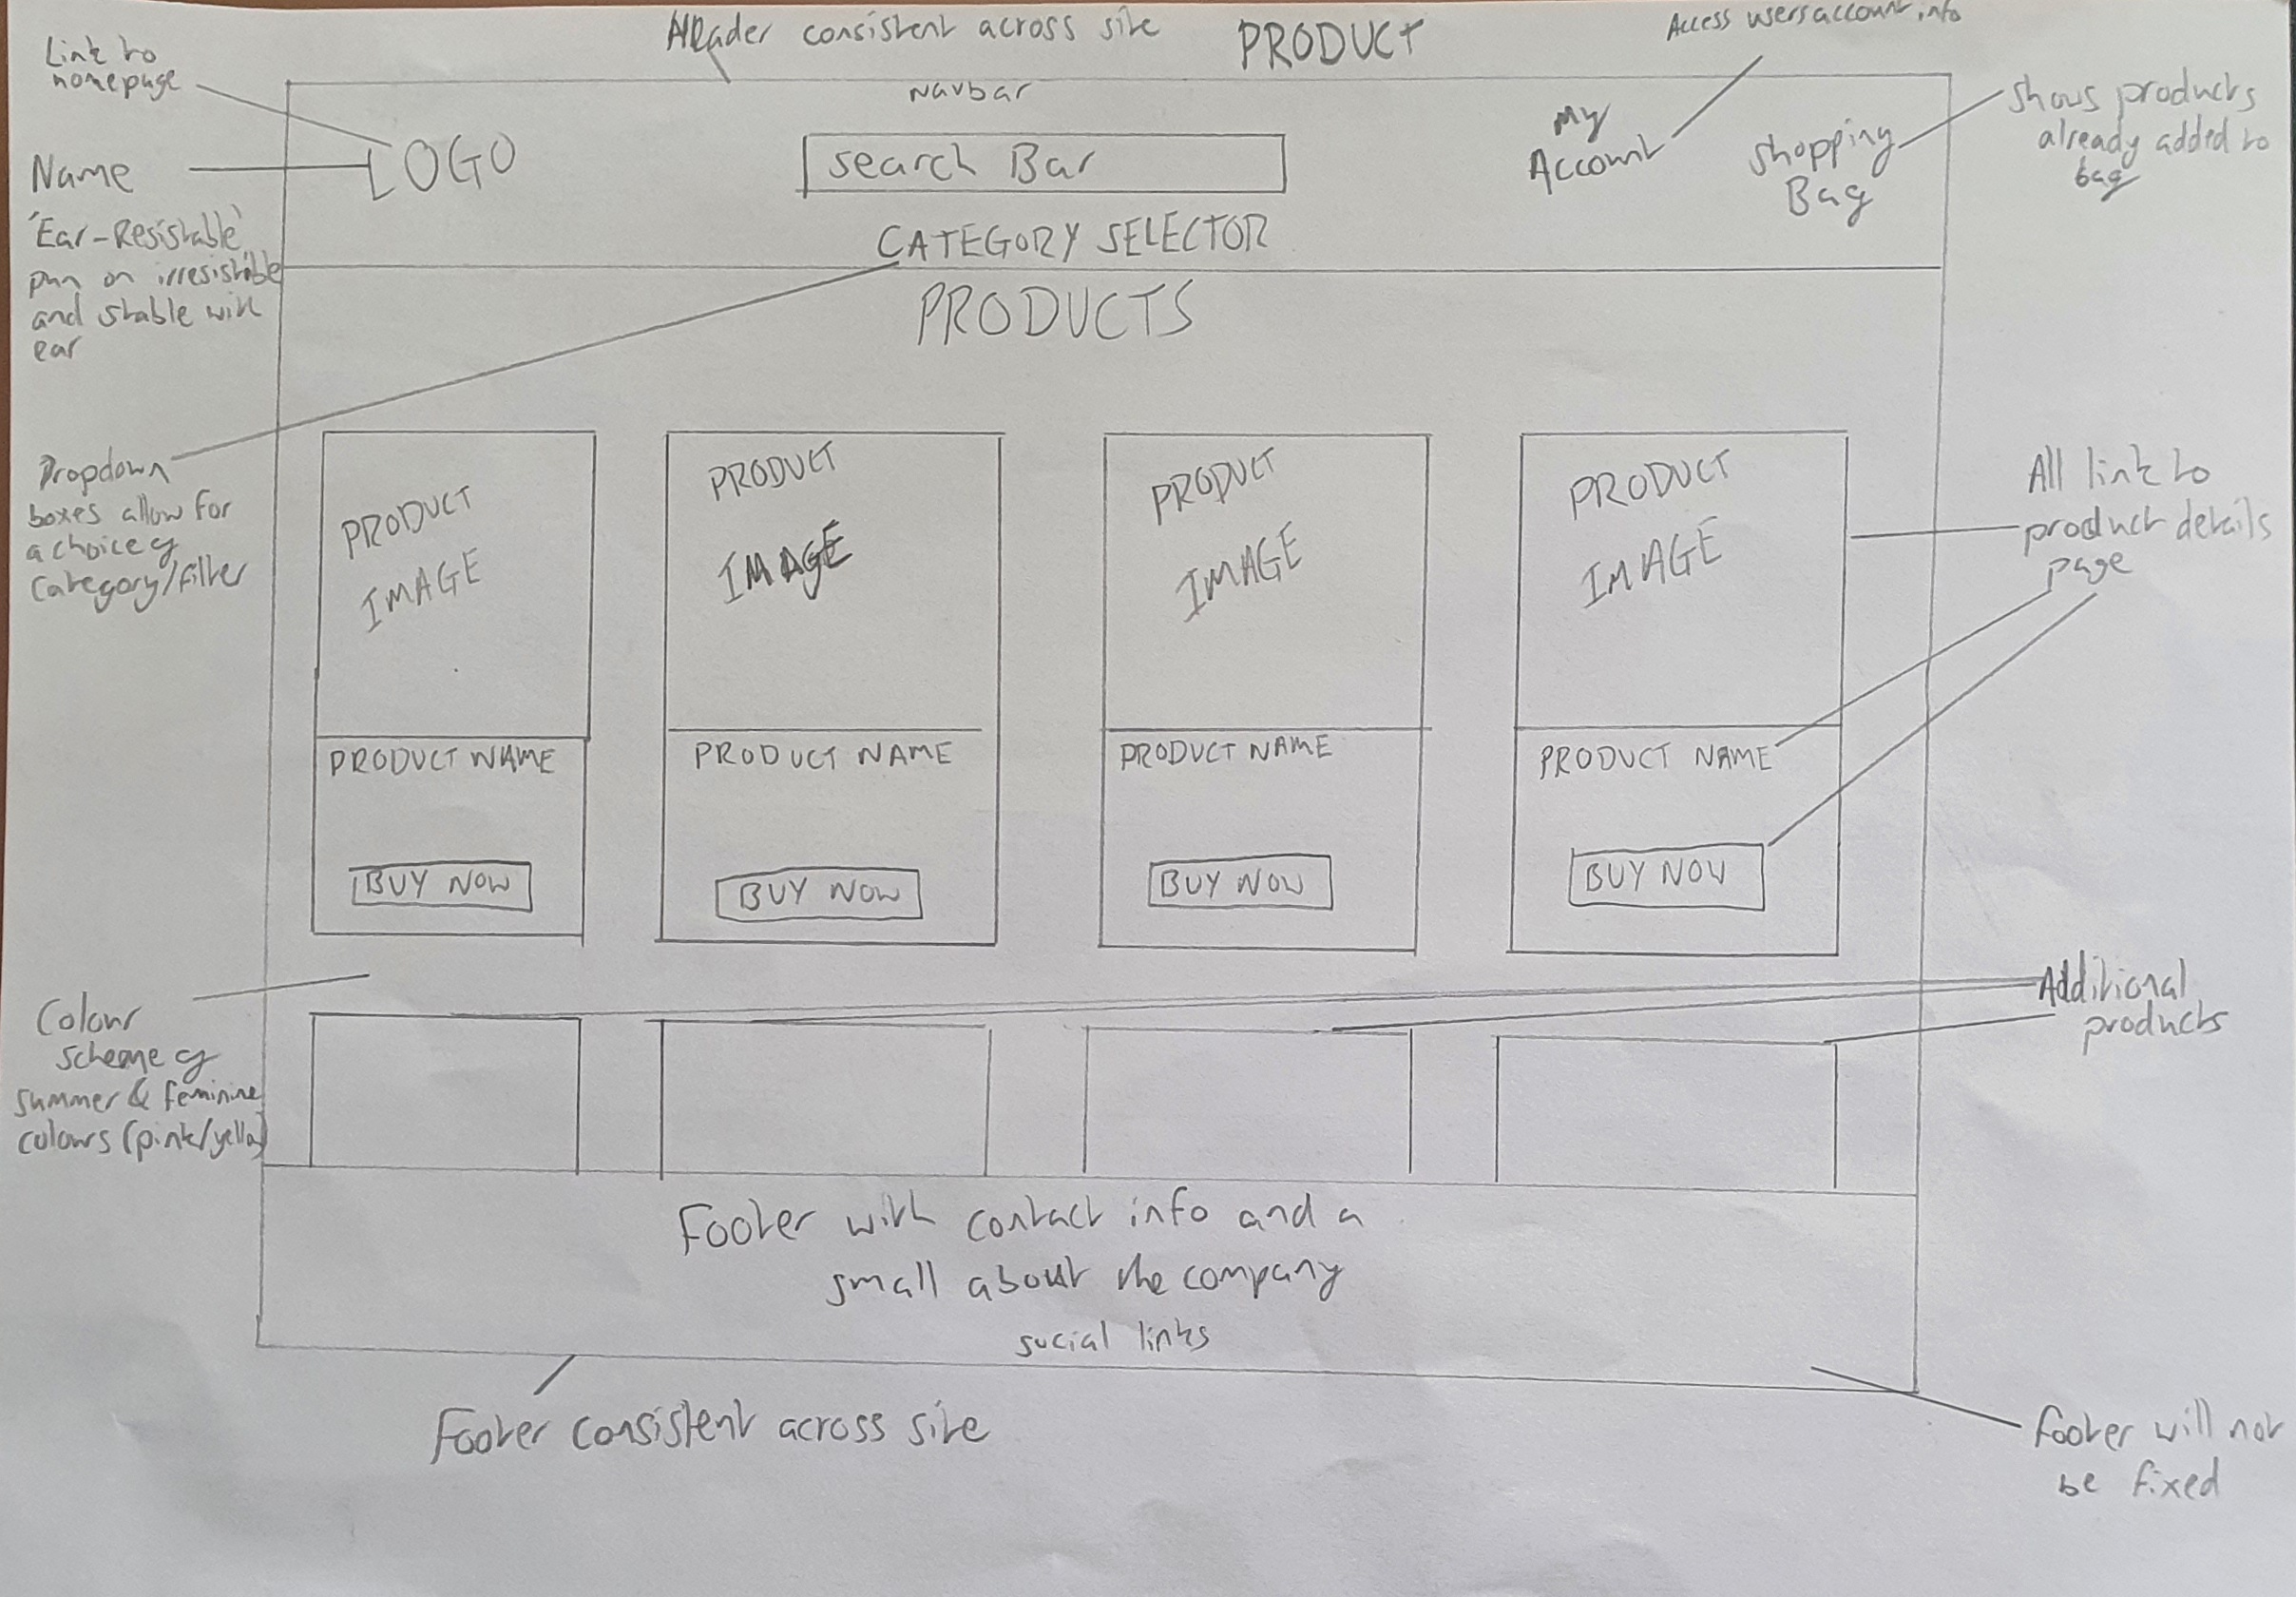 Header consistent across site
PRODUCT
Access users account info
Link to
homepage
navbar
LOGO
search Bar
My
Account
Shopping
Bag
Shows products
already added to
bag
Name
'Ear-Resistable'
pun on irresistible
and stable with
ear
CATEGORY SELECTOR
PRODUCTS
Dropdown
boxes allow for
a choice of
category/filter
PRODUCT
IMAGE
PRODUCT NAME
BUY NOW
PRODUCT
IMAGE
PRODUCT NAME
BUY NOW
PRODUCT
IMAGE
PRODUCT NAME
BUY NOW
PRODUCT
IMAGE
PRODUCT NAME
BUY NOW
All link to
product details
page
Colour
scheme of
summer & feminine
colours (pink/yello)
Additional
products
Footer with contact info and a
small about the company
social links
Footer consistent across site
Footer will not
be fixed